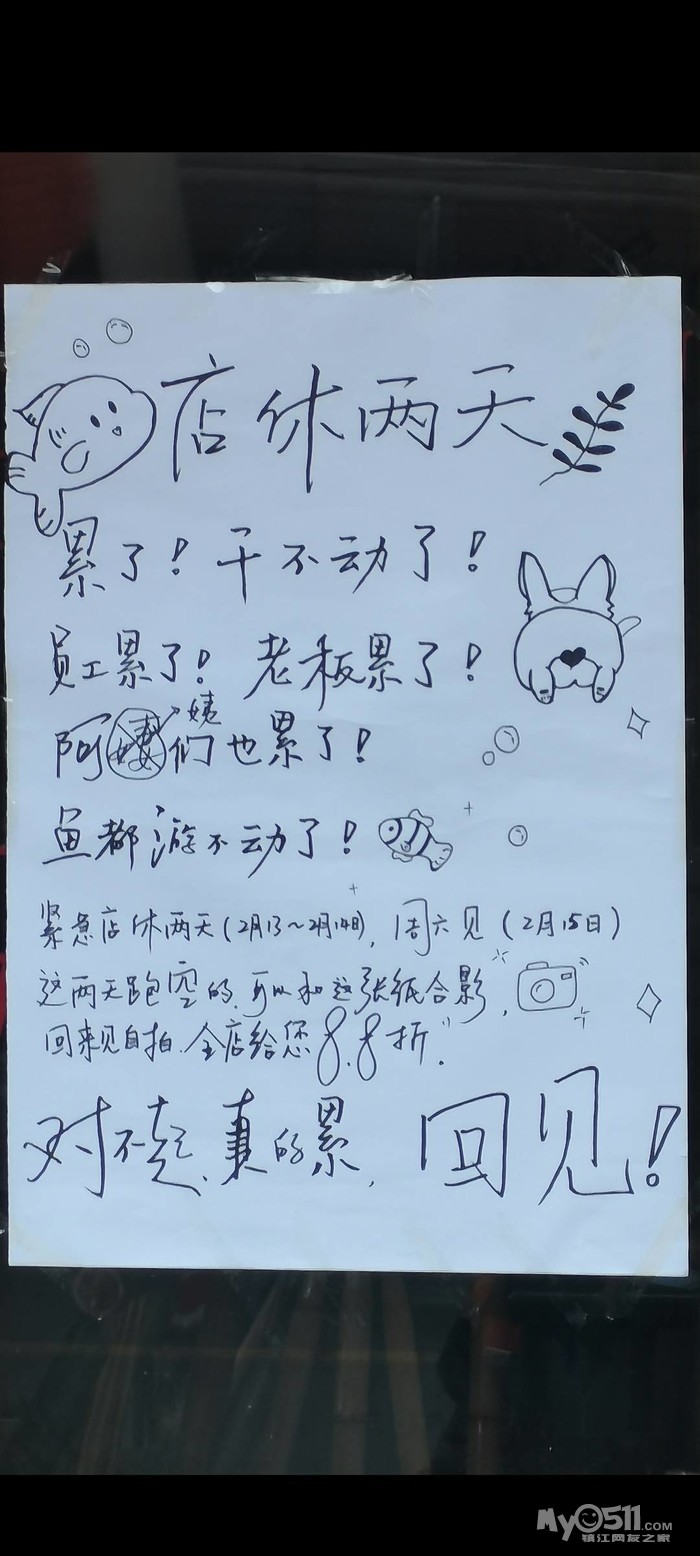 店休两天
累了！干不动了！
员工累了！老板累了！
阿姨们也累了！
鱼都游不动了！
紧急店休两天(2月13~2月14日)，周六见(2月15日)
这两天跑空的，可以和这张纸合影，
回来见自拍，全店给您8.8折"。
对不起、真的累，回见！
My0511.COM
镇江网友之家